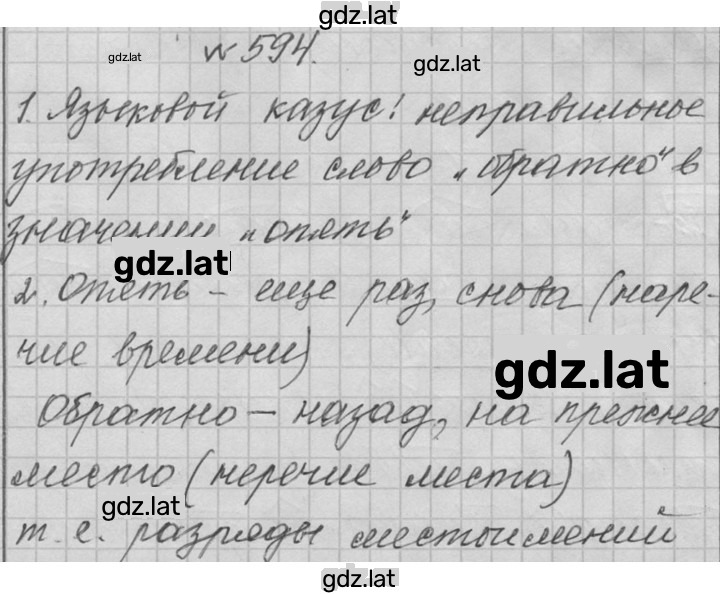 gdz.lat
№ 594.
gdz.lat
gdz.lat
1. Языковой казус: неправильное
употребление слово „обратно“ в
значении „опять“
gdz.lat
2. Опять – еще раз, снова (наре-
чие времени)
gdz.lat
Обратно – назад, на прежнее
место (неречие места)
gdz.lat
т. е. разряды местоимений
gdz.lat